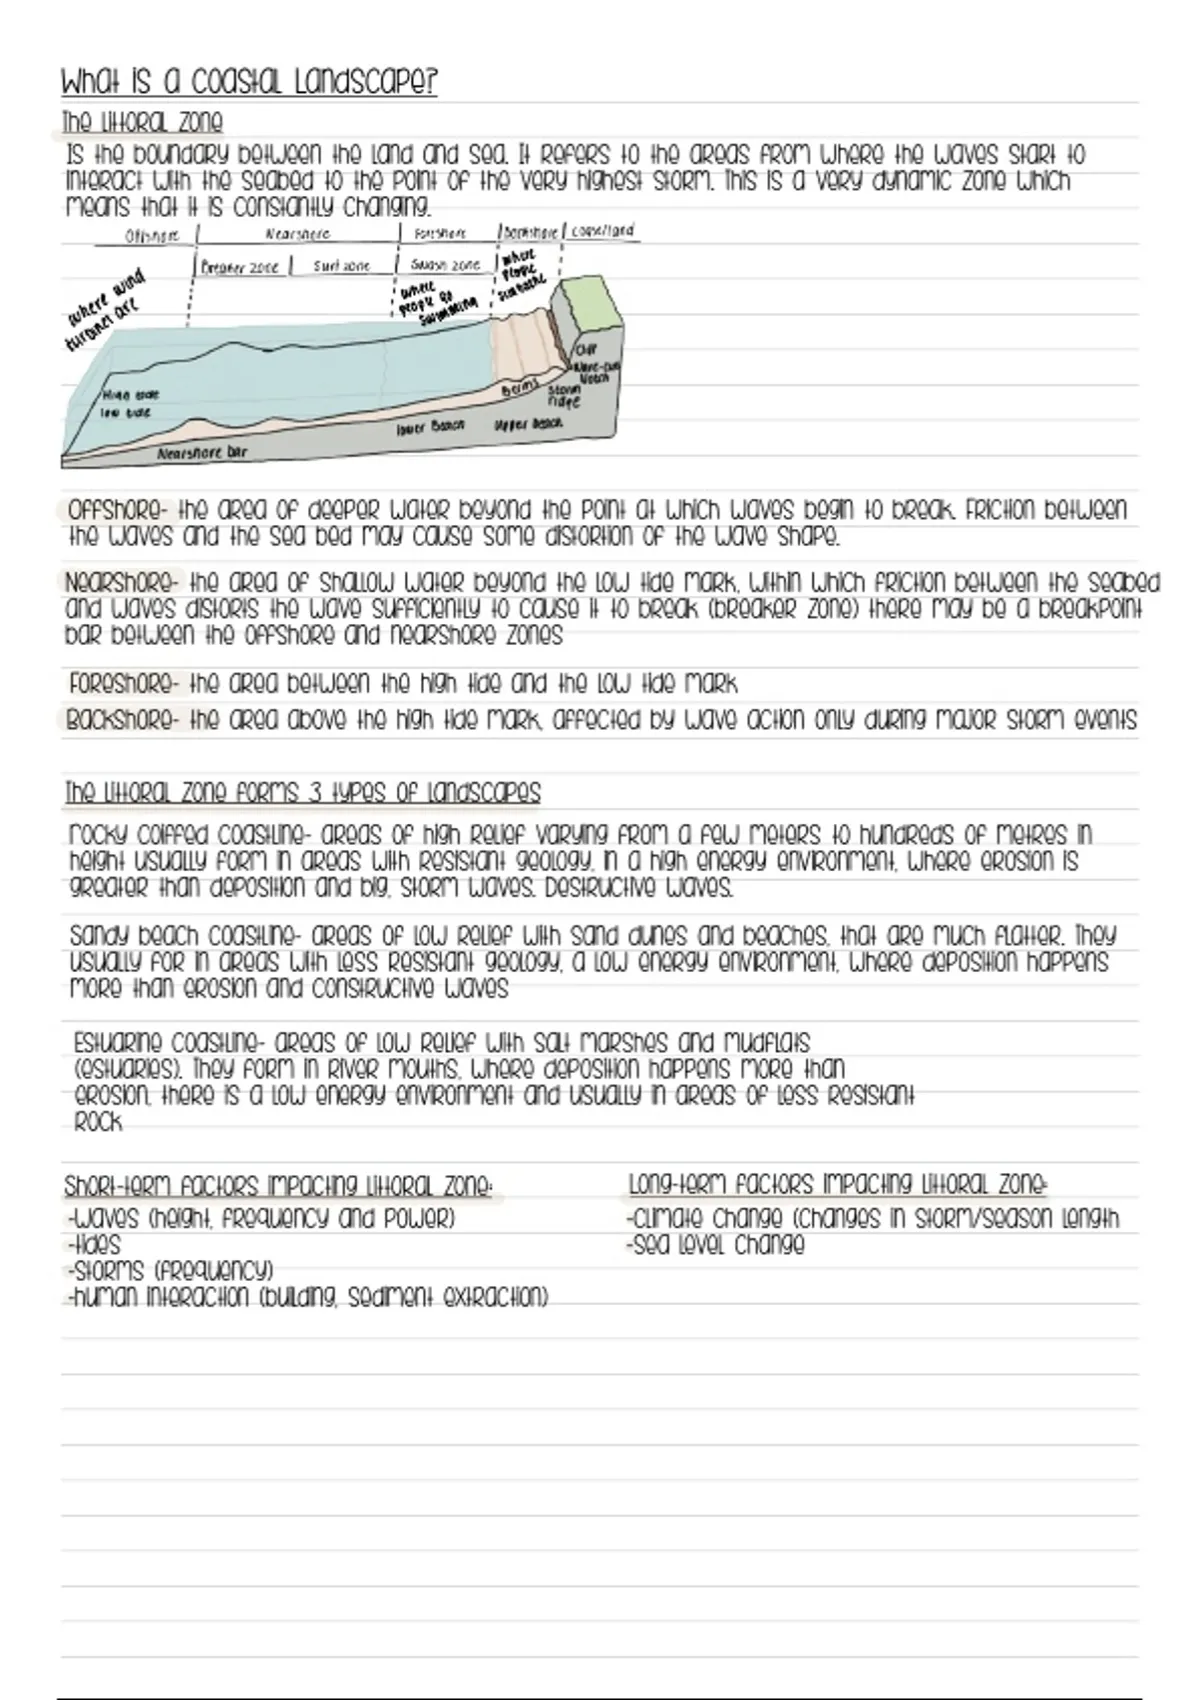 What is a coastal landscape?
The Littoral Zone
Is the boundary between the land and sea. It refers to the areas from where the waves start to
interact with the seabed to the point of the very highest storm. This is a very dynamic zone which
means that it is constantly changing.
Offshore Nearshore Foreshore Backshore Coast/land
Breaker zone Surf zone Swash zone
where wind
turbines are
where
people go
swimming
where
people
sunbathe
High tide
low tide
Cliff
Wave-cut
Notch
Berms
Storm
ridge
lower Beach
Upper beach
Nearshore bar
Offshore- the area of deeper water beyond the point at which waves begin to break. Friction between
the waves and the sea bed may cause some distortion of the wave shape.
Nearshore- the area of shallow water beyond the low tide mark, within which friction between the seabed
and waves distorts the wave sufficiently to cause it to break (breaker zone) there may be a breakpoint
bar between the offshore and nearshore zones
Foreshore- the area between the high tide and the low tide mark
Backshore- the area above the high tide mark, affected by wave action only during major storm events
The littoral zone forms 3 types of landscapes
rocky coiffed coastline- areas of high relief varying from a few meters to hundreds of metres in
height usually form in areas with resistant geology, in a high energy environment, where erosion is
greater than deposition and big, storm waves. Destructive waves.
Sandy beach coastline- areas of low relief with sand dunes and beaches, that are much flatter. They
usually for in areas with less resistant geology, a low energy environment, where deposition happens
more than erosion and constructive waves
Estuarine coastline- areas of low relief with salt marshes and mudflats
(estuaries). They form in river mouths, where deposition happens more than
erosion, there is a low energy environment and usually in areas of less resistant
rock
Short-term factors impacting littoral zone:
-waves (height, frequency and power)
-tides
-storms (frequency)
-human interaction (building, sediment extraction)
Long-term factors impacting littoral zone:
-climate change (changes in storm/season length
-sea level change